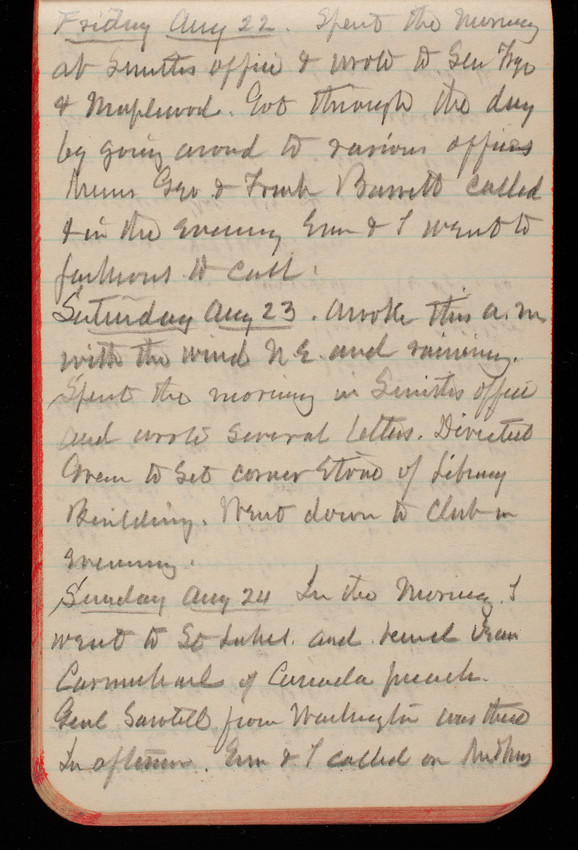 Friday Aug 22. Spent the Morning
at Smiths office & wrote to Geo Frye
& Maplewood. Got through the day
by going around to various offices
Geo & Frank Barrett called
& in the evening Em & I went to
to call.
Saturday Aug 23. Awoke this a.m
with the wind N.E. and raining.
Spent the morning in Smiths office
and wrote several letters. Directed
to set corner stone of Library
Building. Went down to Club in
evening.
Sunday Aug 24 In the Morning I
went to St Lukes. and heard Dean
Carmichael of Canada preach.
Genl Sawtell from Washington was there
In afternoon. Em & I called on